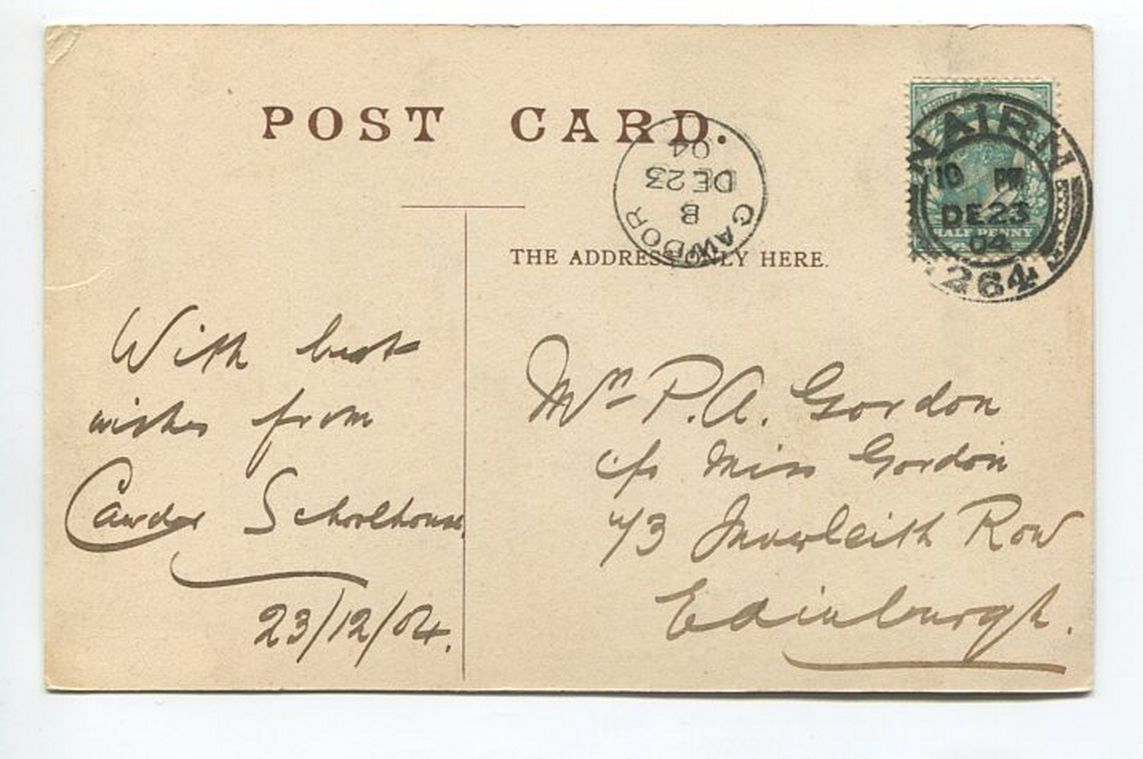 POST CARD.
CAWDOR
B
DE 23
04
NAIRN
10 PM
DE 23
04
264
HALF PENNY
THE ADDRESS ONLY HERE.
With best
wishes from
Cawdor Schoolhouse
23/12/04.
P. A. Gordon
c/o Miss Gordon
Inverleith Row
Edinburgh.